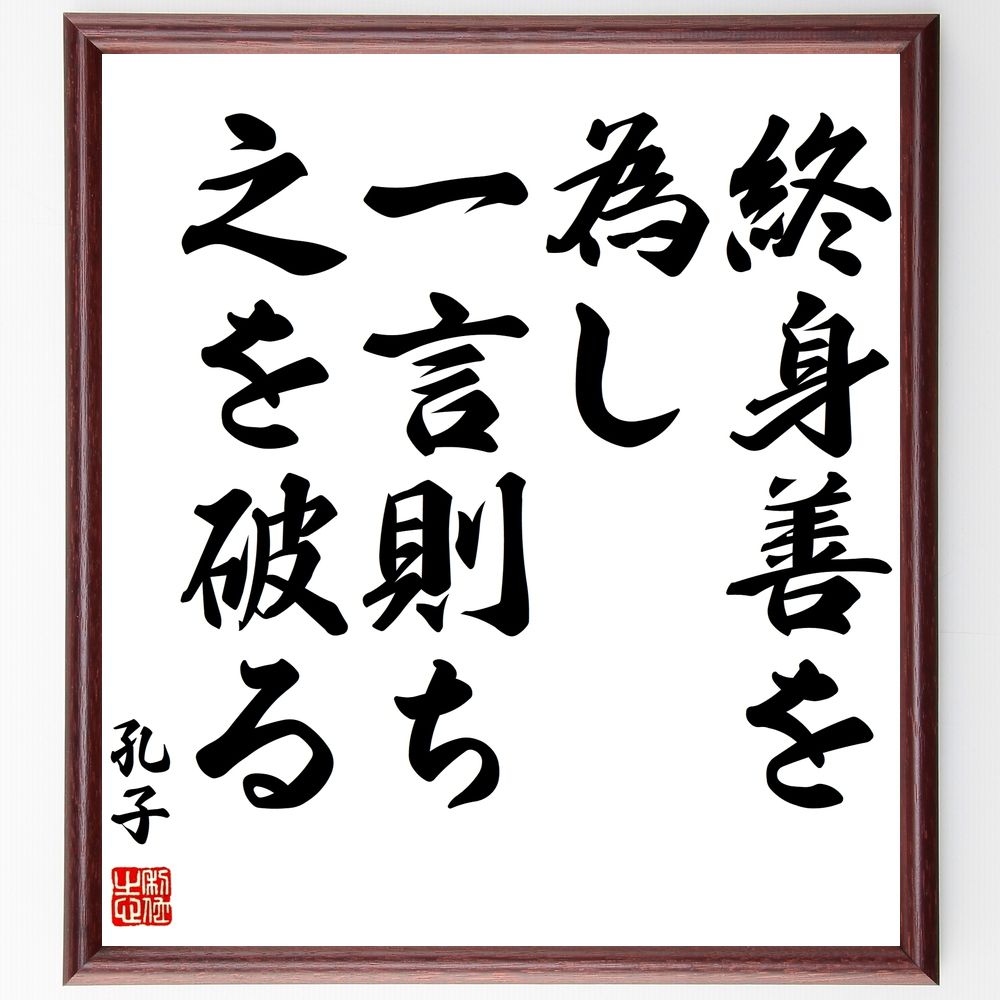 終身善を
為し
一言則ち
之を破る
孔子